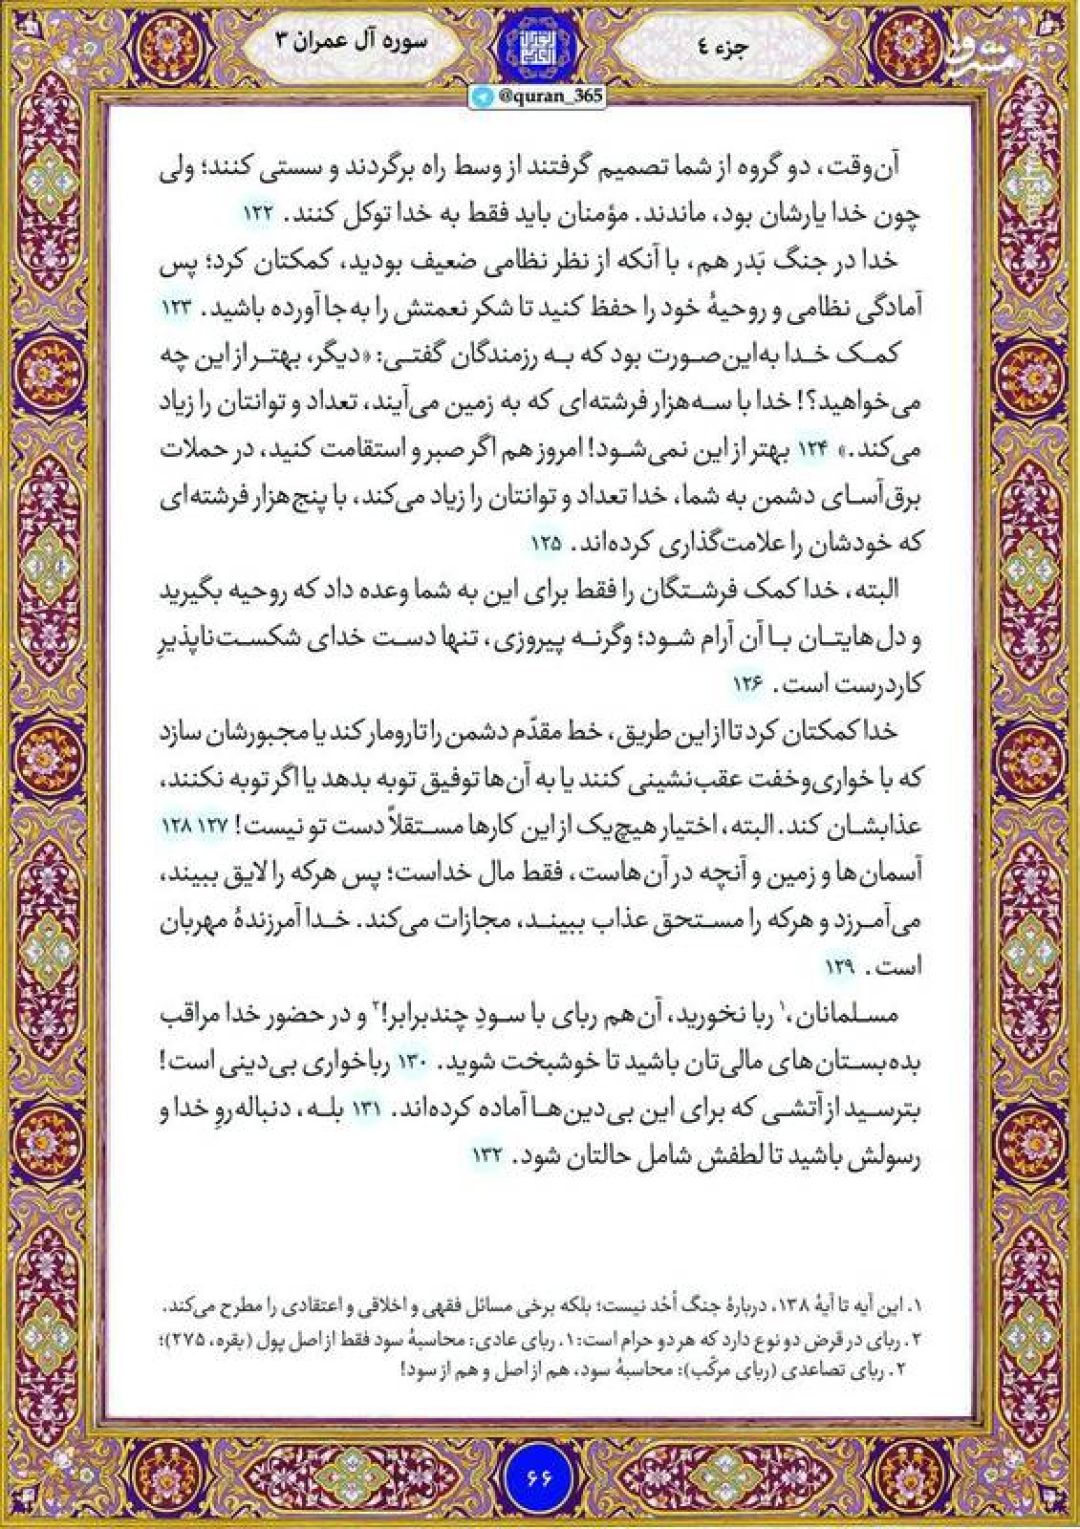 جزء ٤
سوره آل عمران ٣
@quran_365
آن‌وقت، دو گروه از شما تصمیم گرفتند از وسط راه برگردند و سستی کنند؛ ولی
چون خدا یارشان بود، ماندند. مؤمنان باید فقط به خدا توکل کنند. ۱۲۲
خدا در جنگ بَدر هم، با آنکه از نظر نظامی ضعیف بودید، کمکتان کرد؛ پس
آمادگی نظامی و روحیهٔ خود را حفظ کنید تا شکر نعمتش را به‌جا آورده باشید. ۱۲۳
کمک خدا به‌این‌صورت بود که به رزمندگان گفتی: «دیگر، بهتر از این چه
می‌خواهید؟! خدا با سه‌هزار فرشته‌ای که به زمین می‌آیند، تعداد و توانتان را زیاد
می‌کند.» ۱۲۴ بهتر از این نمی‌شود! امروز هم اگر صبر و استقامت کنید، در حملات
برق‌آسای دشمن به شما، خدا تعداد و توانتان را زیاد می‌کند، با پنج‌هزار فرشته‌ای
که خودشان را علامت‌گذاری کرده‌اند. ۱۲۵
البته، خدا کمک فرشتگان را فقط برای این به شما وعده داد که روحیه بگیرید
و دل‌هایتان با آن آرام شود؛ وگرنه پیروزی، تنها دست خدای شکست‌ناپذیرِ
کاردرست است. ۱۲۶
خدا کمکتان کرد تا از این طریق، خط مقدّم دشمن را تارومار کند یا مجبورشان سازد
که با خواری‌وخفت عقب‌نشینی کنند یا به آن‌ها توفیق توبه بدهد یا اگر توبه نکنند،
عذابشان کند. البته، اختیار هیچ‌یک از این کارها مستقلاً دست تو نیست! ۱۲۷ ۱۲۸
آسمان‌ها و زمین و آنچه در آن‌هاست، فقط مال خداست؛ پس هرکه را لایق ببیند،
می‌آمرزد و هرکه را مستحق عذاب ببیند، مجازات می‌کند. خدا آمرزندهٔ مهربان
است. ۱۲۹
مسلمانان،¹ ربا نخورید، آن‌هم ربای با سودِ چندبرابر!² و در حضور خدا مراقب
بده‌بستان‌های مالی‌تان باشید تا خوشبخت شوید. ۱۳۰ رباخواری بی‌دینی است!
بترسید از آتشی که برای این بی‌دین‌ها آماده کرده‌اند. ۱۳۱ بله، دنباله‌روِ خدا و
رسولش باشید تا لطفش شامل حالتان شود. ۱۳۲
۱. این آیه تا آیهٔ ۱۳۸، دربارهٔ جنگ اُحُد نیست؛ بلکه برخی مسائل فقهی و اخلاقی و اعتقادی را مطرح می‌کند.
۲. ربای در قرض دو نوع دارد که هر دو حرام است: ۱. ربای عادی: محاسبهٔ سود فقط از اصل پول (بقره، ۲۷۵)؛
۲. ربای تصاعدی (ربای مرکّب): محاسبهٔ سود، هم از اصل و هم از سود!
۶۶